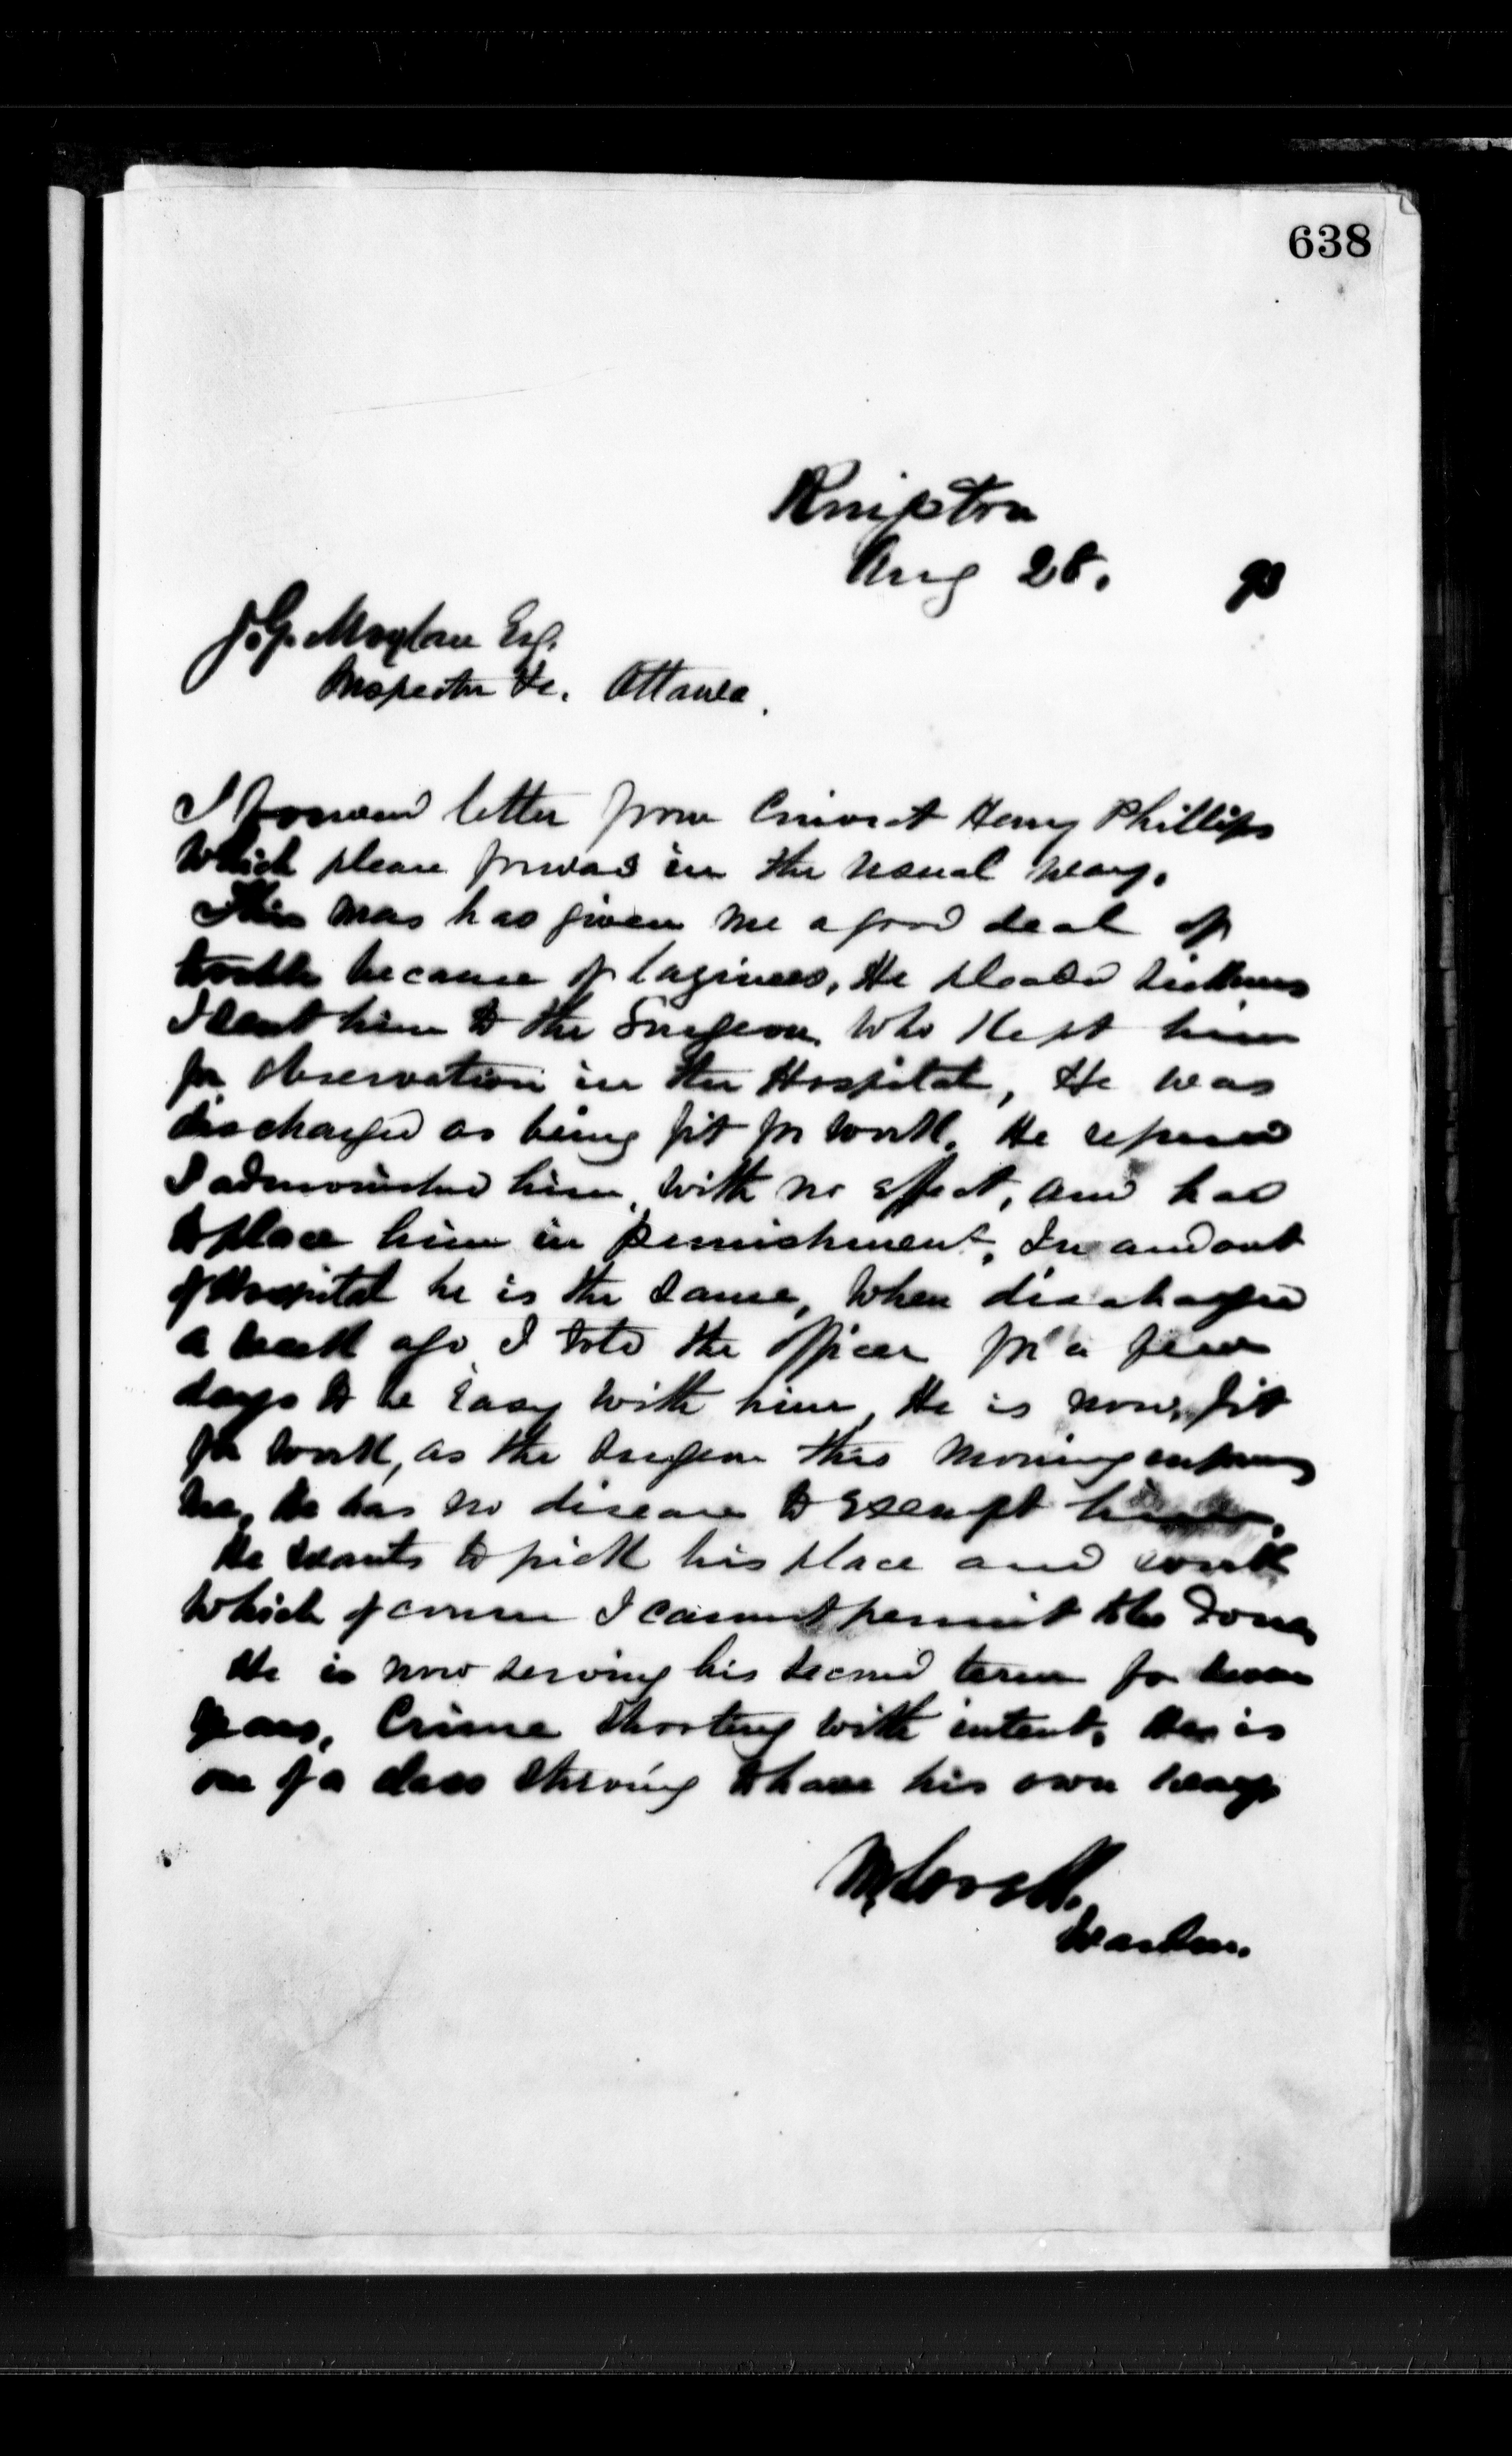 638
Kingston
Aug 28. 93
J. G. Moylan Esq.
Inspector &c. Ottawa.
I forward letter from Convict Henry Phillips
which please forward in the usual way.
This man has given me a good deal of
trouble because of laziness, He pleads sickness
I sent him to the Surgeon who kept him
for observation in the Hospital, He was
discharged as being fit for work. He refused
I admonished him, with no effect, and had
to place him in punishment. In and out
of Hospital he is the same, When discharged
a week ago I told the officer for a few
days to be easy with him, He is now fit
for work, as the Surgeon this morning informs
me, He has no disease to exempt him.
He wants to pick his place and work
which of course I cannot permit to be done,
He is now serving his second term for
years, Crime Shooting with intent. He is
one of a class striving to have his own way
M. Lavell.
Warden.